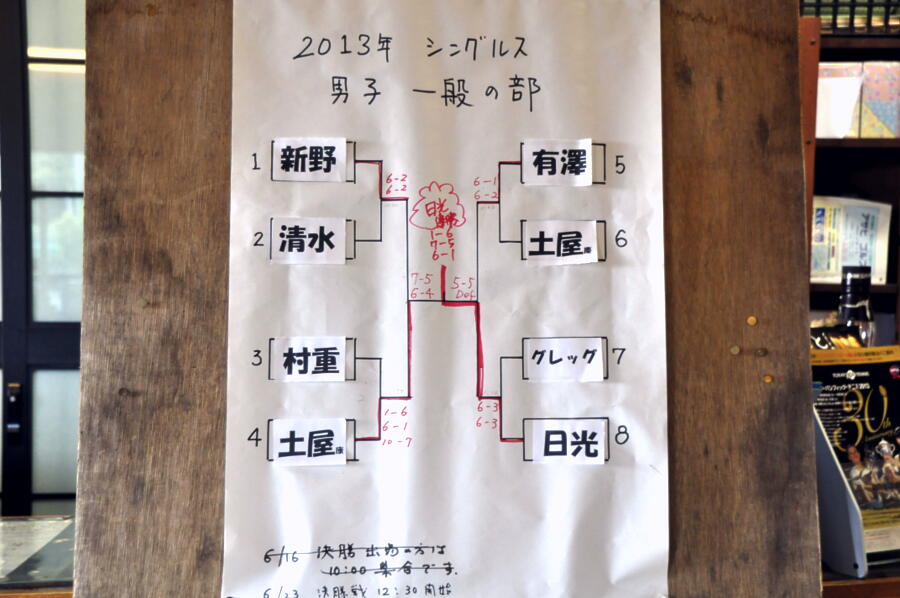 2013年 シングルス
男子 一般の部
1 新野
6-2
6-2
2 清水
3 村重
4 土屋庫
1-6
6-1
10-7
7-5
6-4
日光
優勝
1-6
7-5
6-1
有澤 5
6-1
6-2
土屋 6
グレッグ 7
日光 8
6-3
6-3
5-5
Def
6/16 決勝 出場の方は
10:00 集合です。
6/23 決勝戦 12:30開始
30th